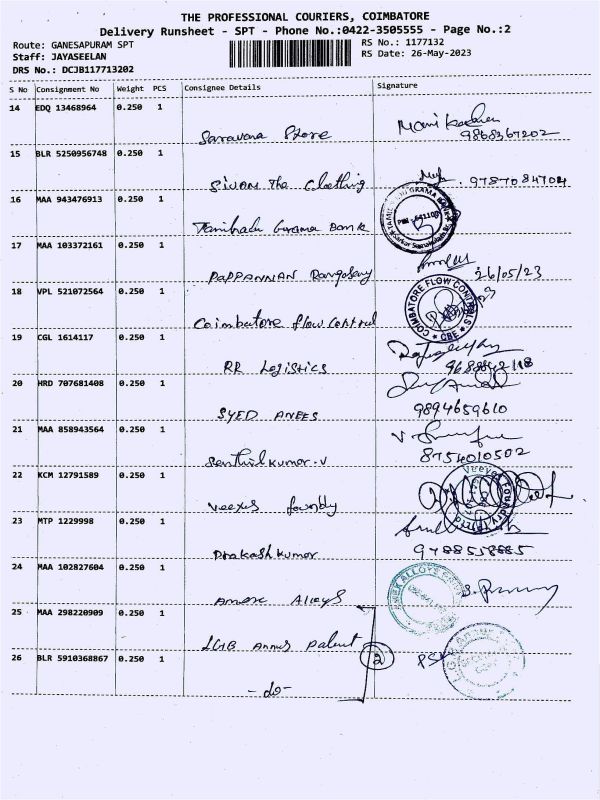 THE PROFESSIONAL COURIERS, COIMBATORE
Delivery Runsheet - SPT - Phone No.:0422-3505555 - Page No.:2
Route: GANESAPURAM SPT RS No.: 1177132
Staff: JAYASEELAN RS Date: 26-May-2023
DRS No.: DCJB117713202
S No Consignment No Weight PCS Consignee Details Signature
14 EDQ 13468964 0.250 1
Saravana Store
9868367202
15 BLR 5250956748 0.250 1
Sivan The Clothing 9787084704
16 MAA 943476913 0.250 1
Tamilnadu Grama Bank
17 MAA 103372161 0.250 1
PAPPANNAN 26/05/23
18 VPL 521072564 0.250 1
Coimbatore flow control
COIMBATORE FLOW CONTROLS
CBE
19 CGL 1614117 0.250 1
RR Logistics
20 HRD 707681408 0.250 1
SYED ANEES 9894659610
21 MAA 858943564 0.250 1
Senthilkumar.V 8754010502
22 KCM 12791589 0.250 1
Veexes foundry
23 MTP 1229998 0.250 1
Prakash Kumar
24 MAA 102827604 0.250 1
Amex Alloys
25 MAA 298220909 0.250 1
LGB
26 BLR 5910368867 0.250 1
2
- do -